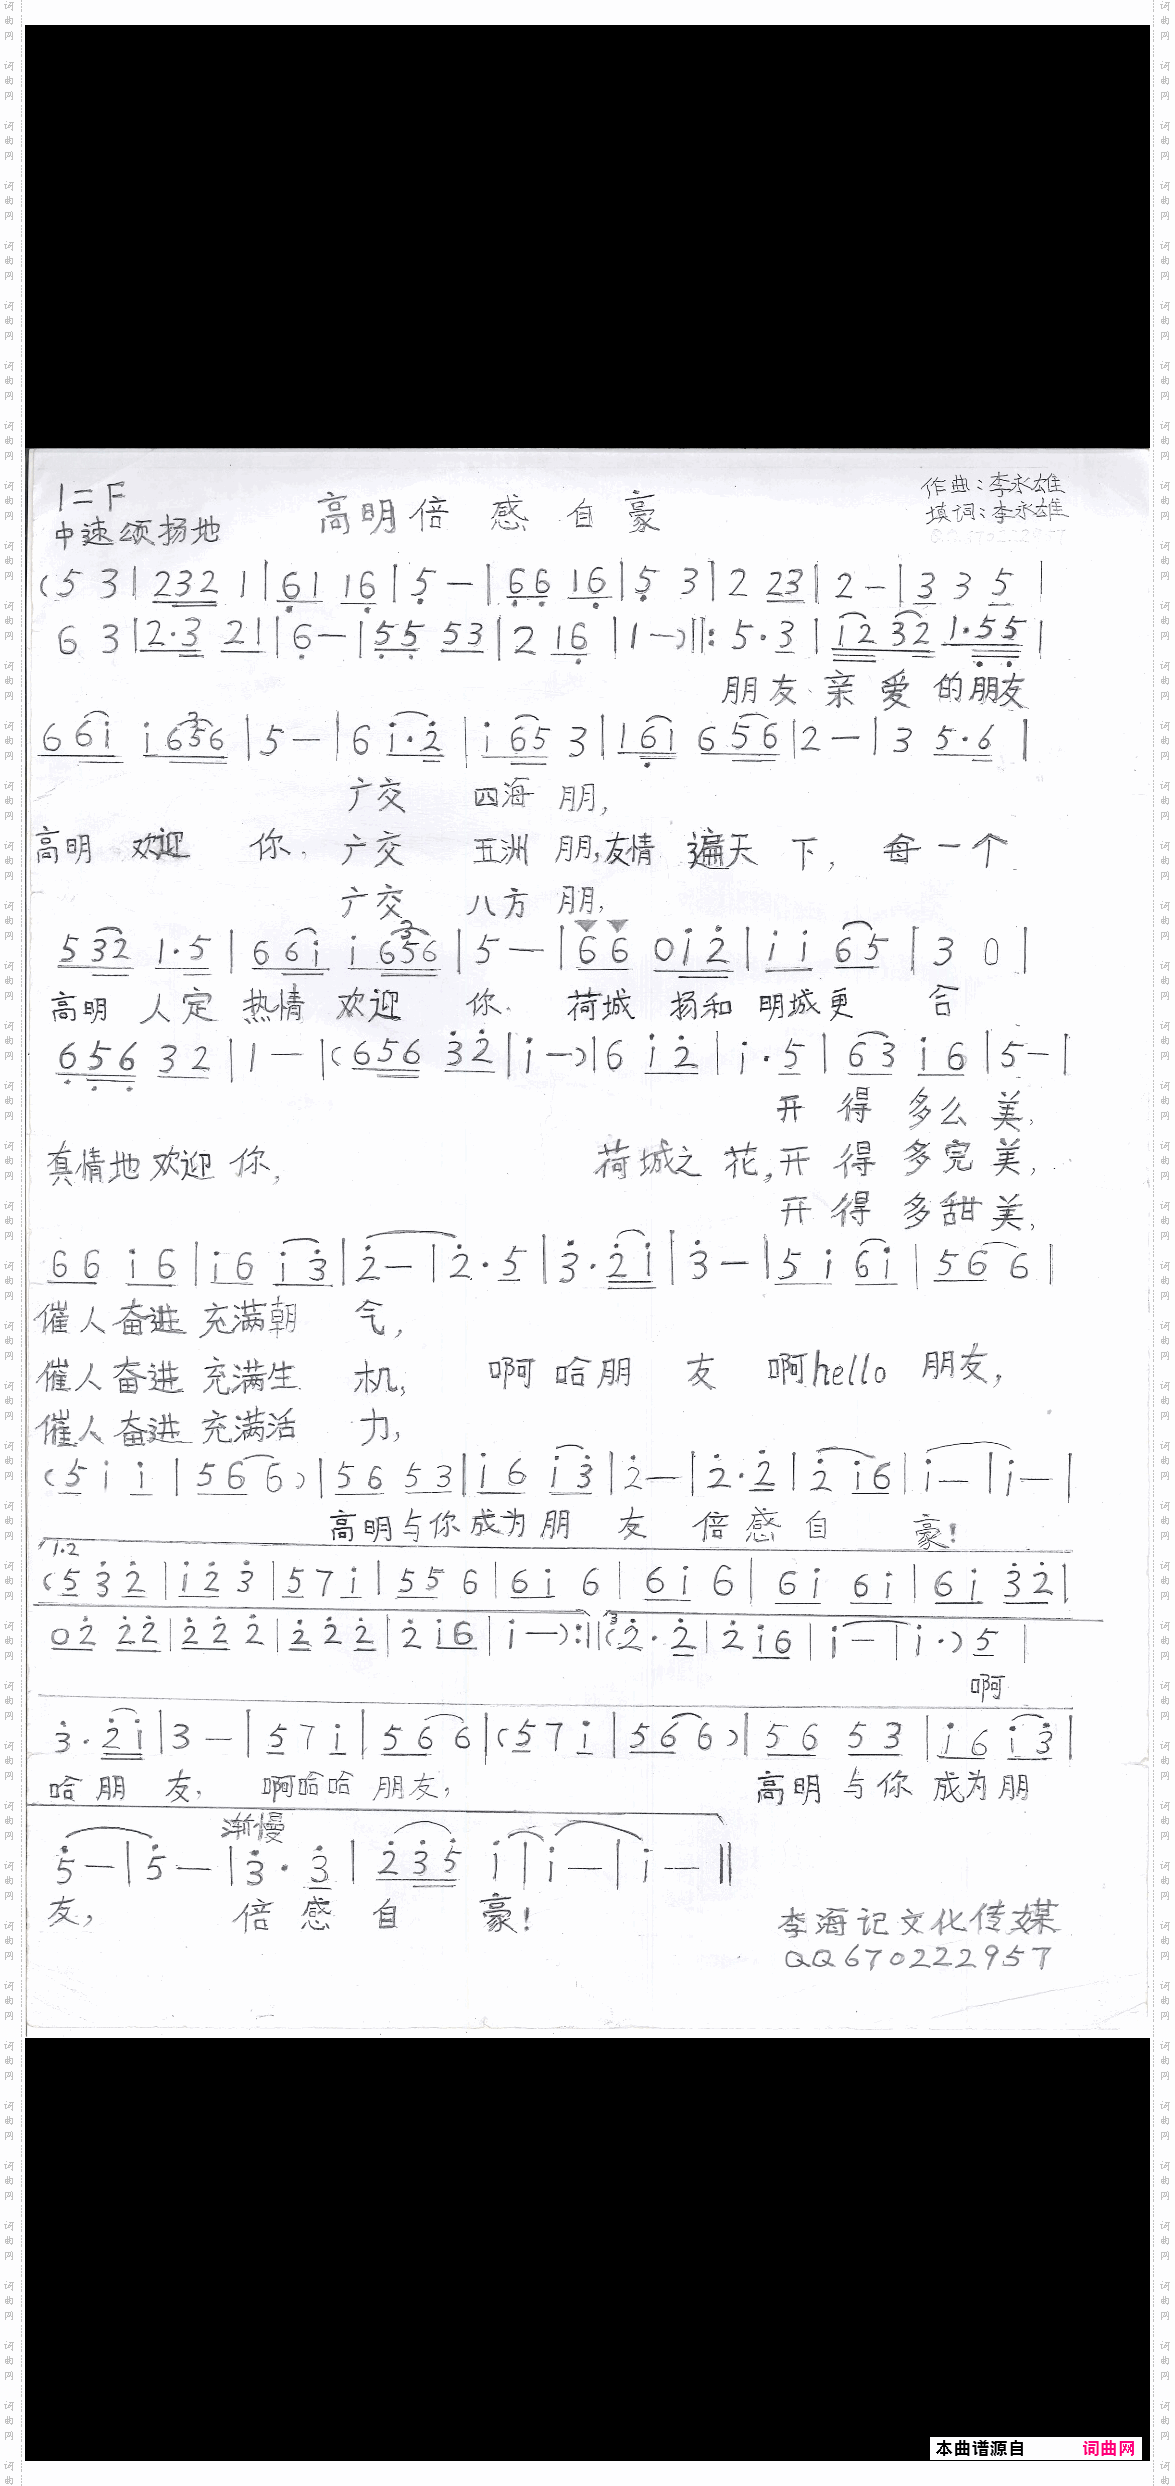 1=F
高明倍感自豪
作曲:李永雄
中速颂扬地
填词:李永雄
(5 3|232 1|61 16|5 —|66 16|5 3|2 23|2 —|3 3 5|
6 3|2·3 21|6 —|55 53|2 16|1 —)‖: 5·3|12 32 1·55|
朋友 亲爱的朋友
6 61 1 656|5 —|6 1·2|1 65 3|161 656|2 —|3 5·6|
广交 四海 朋,
高明 欢迎 你. 广交 五洲 朋,友情 遍天 下, 每一个
广交 八方 朋,
5 32 1·5|6 61 1 656|5 —|66 012|11 65|3 0|
高明 人定 热情 欢迎 你. 荷城 扬和 明城更 合
656 32|1 —|(656 32|1 —)|6 12|1·5|63 16|5 —|
开得多么美,
真情地欢迎你, 荷城之花,开得多完美,
开得多甜美,
66 16|16 13|2 —|2·5|3·21|3 —|5 1 61|56 6|
催人奋进充满朝气,
催人奋进充满生机, 啊哈朋友 啊hello朋友,
催人奋进充满活力,
(5 1 1|56 6)|56 53|16 13|2 —|2·2|2 16|1 —|1 —|
高明与你成为朋友 倍感自豪!
1.2
(5 3 2|1 2 3|5 7 1|55 6|61 6|61 6|61 61|61 32|
02 22|22 2|2 2 2|2 16|1 —):‖3(2·2|2 16|1 —|1·) 5|
啊
3·21|3 —|5 7 1|56 6|(5 7 1|56 6)|56 53|16 13|
哈朋友, 啊哈哈朋友, 高明与你成为朋
渐慢
5 —|5 —|3·3|235 1|1 —|1 —‖
友, 倍感自豪!
李海记文化传媒
QQ670222957
本曲谱源自 词曲网